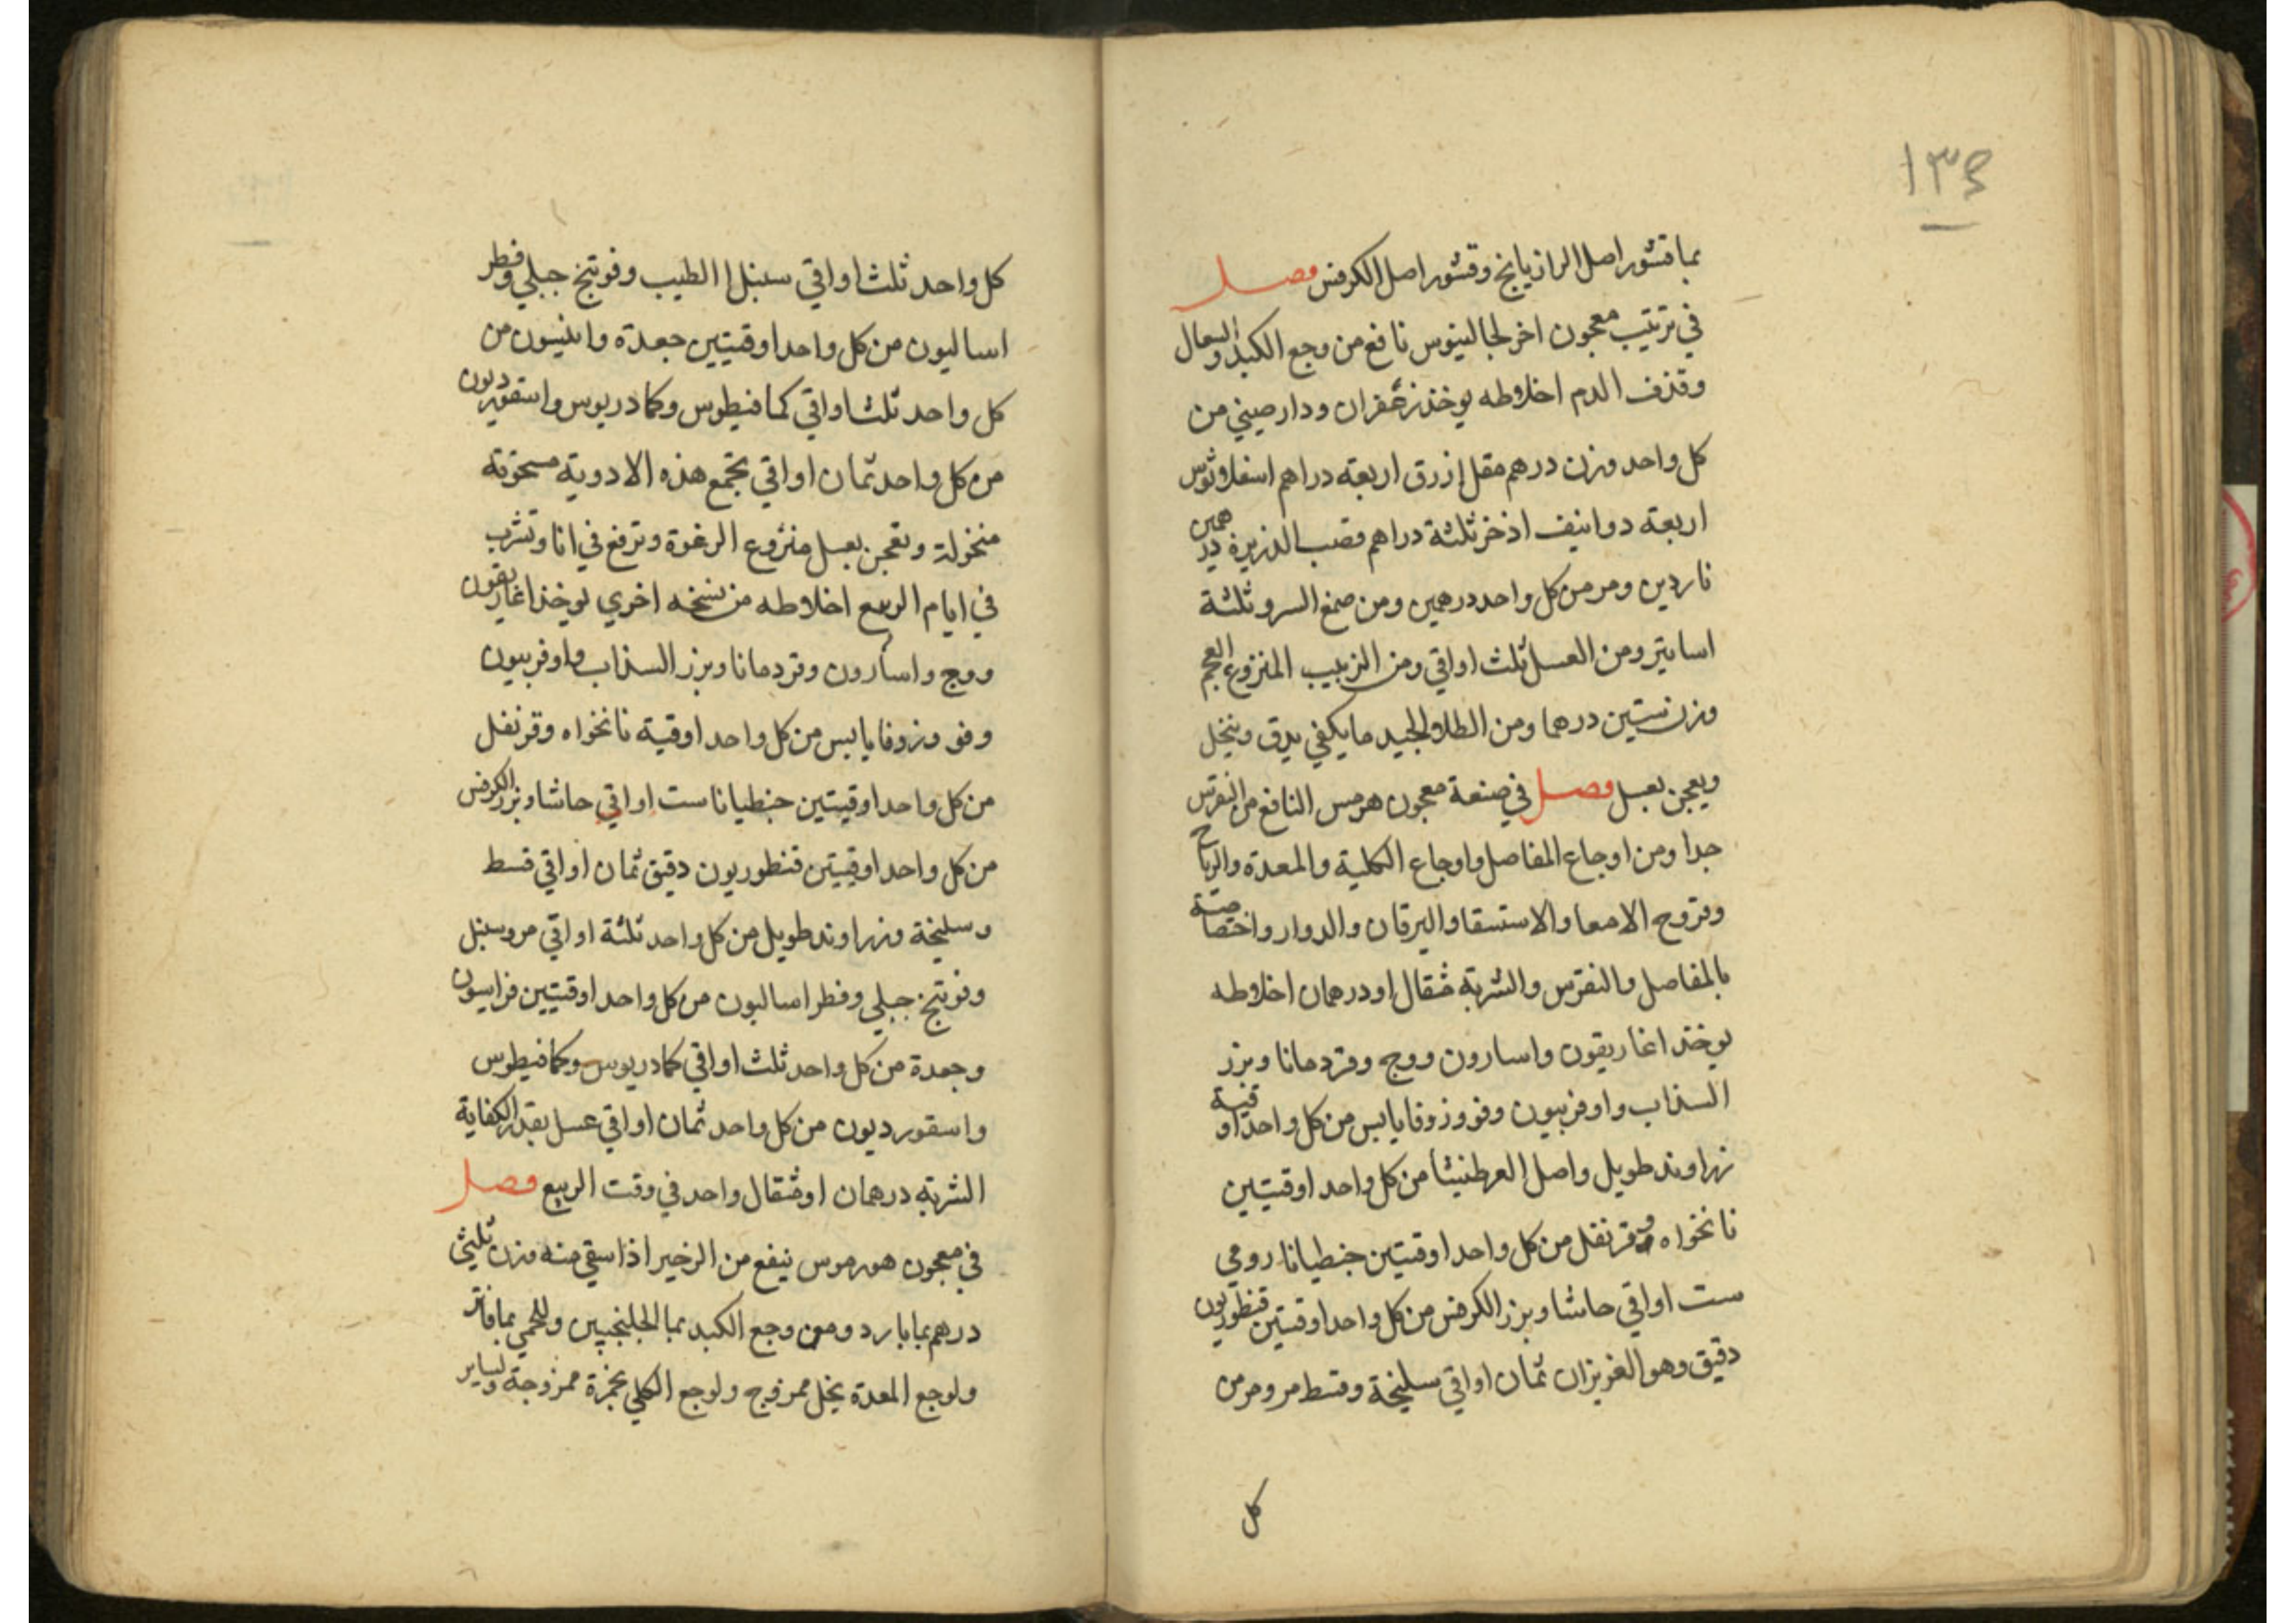 ١٣٤
بما قشور اصل الرازيانج وقشور اصل الكرفس فصل
في ترتيب معجون اخر لجالينوس نافع من وجع الكبد والسعال
وقذف الدم اخلاطه يوخذ زعفران ودارصيني من
كل واحد وزن درهم مقل ازرق اربعة دراهم اسفلاوثوس
اربعة دوانيف اذخر ثلثة دراهم قصب الذريرة درهمين
ناردين ومر من كل واحد درهمين ومن صمغ السرو ثلثة
اساتير ومن العسل ثلث اواقي ومن الزبيب المنزوع العجم
وزن ستين درهما ومن الطلا الجيد ما يكفي يدق وينخل
ويعجن بعسل فصل في صنعة معجون هرمس النافع من النقرس
جدا ومن اوجاع المفاصل واوجاع الكلية والمعدة والرياح
وقروح الامعا والاستسقا واليرقان والدوار واختصاصة
بالمفاصل والنقرس والشربة مثقال او درهمان اخلاطه
يوخذ اغاريقون واسارون ووج وقردمانا وبزر
السذاب واوفربيون وفو وزوفا يابس من كل واحد اوقية
زراوند طويل واصل العرطنيثا من كل واحد اوقيتين
نانخواه وقرنفل من كل واحد اوقيتين جنطيانا رومي
ست اواقي حاشا وبزر الكرفس من كل واحد اوقيتين قنطوريون
دقيق وهو العزيزان ثمان اواقي سليخة وقسط مر ومر من
كل
كل واحد ثلث اواقي سنبل الطيب وفوتنج جبلي وفطر
اساليون من كل واحد اوقيتين جعدة وانيسون من
كل واحد ثلث اواقي كمافيطوس وكمادريوس واسقورديون
من كل واحد ثمان اواقي تجمع هذه الادوية مسحوقة
منخولة وتعجن بعسل منزوع الرغوة وترفع في انا وتشرب
في ايام الربيع اخلاطه من نسخه اخري يوخذ اغاريقون
ووج واسارون وقردمانا وبزر السذاب واوفربيون
وفو وزوفا يابس من كل واحد اوقية نانخواه وقرنفل
من كل واحد اوقيتين جنطيانا ست اواقي حاشا وبزر الكرفس
من كل واحد اوقيتين قنطوريون دقيق ثمان اواقي قسط
وسليخة وزراوند طويل من كل واحد ثلثة اواقي مر وسنبل
وفوتنج جبلي وفطراساليون من كل واحد اوقيتين فراسيون
وجعدة من كل واحد ثلث اواقي كمادريوس وكمافيطوس
واسقورديون من كل واحد ثمان اواقي عسل بقدر الكفاية
الشربة درهمان او مثقال واحد في وقت الربيع فصل
في معجون هورموس ينفع من الزخير اذا سقي منه وزن ثلثي
درهم بما بارد ومن وجع الكبد بما الجلنجبين وللحمي بما فاتر
ولوجع المعدة بخل ممزوج ولوجع الكلي بخمرة ممزوجة ولساير